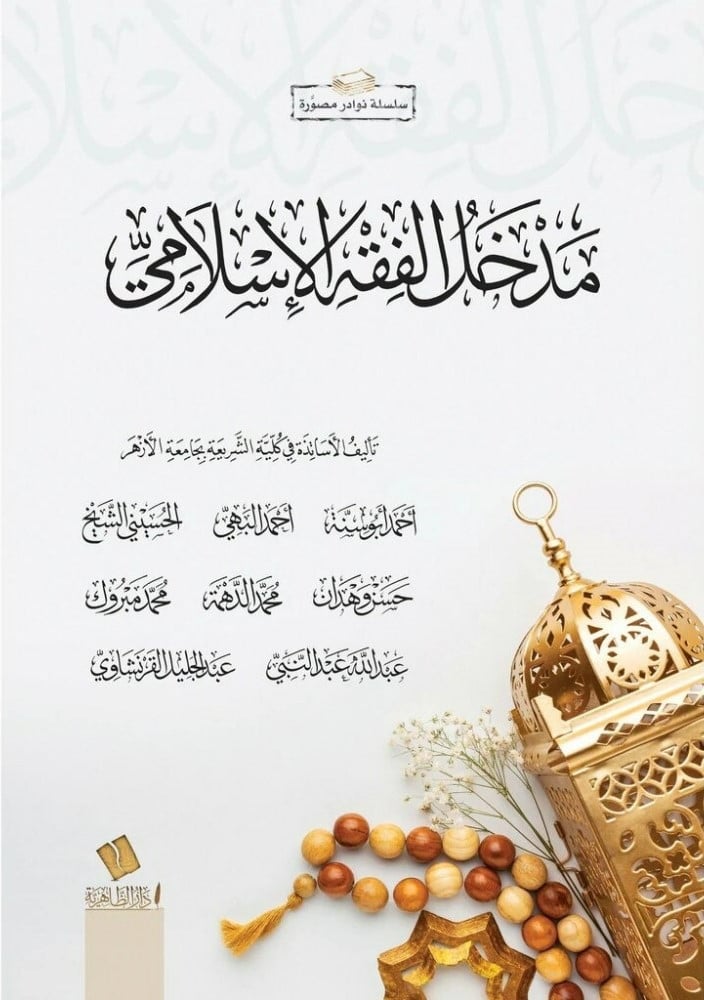 سلسلة نوادر مصوَّرة
مَدْخَلُ الفِقْهِ الإِسْلَامِيِّ
تَأليفُ الأَسَاتِذَةِ فِي كُلِّيَّةِ الشَّرِيعَةِ بِجَامِعَةِ الأَزْهَر
أحمَد أبوسنَّة أحمَد البَهِيّ الحُسَيْني الشَّيْخ
حَسَن وَهْدَان مُحمَّد الدَّهْمَة مُحمَّد مَبْرُوك
عَبْدُ اللَّه عَبْدُ النَّبِيّ عَبْدُ الجَلِيل القَرَنْشَاوِيّ
دَارُ الظَّاهِرِيَّة